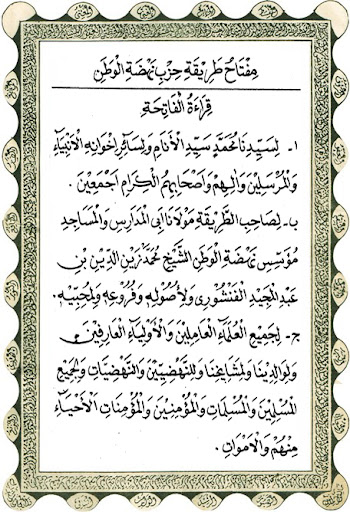 مِفْتَاحُ طَرِيْقَةِ حِزْبِ نَهْضَةِ الْوَطَنِ
قِرَاءَةُ الْفَاتِحَةِ
١- لِسَيِّدِنَا مُحَمَّدٍ سَيِّدِ الْأَنَامِ وَلِسَائِرِ إِخْوَانِهِ الْأَنْبِيَاءِ
وَالْمُرْسَلِيْنَ وَآلِهِمْ وَأَصْحَابِهِمُ الْكِرَامِ أَجْمَعِيْنَ .
ب- لِصَاحِبِ الطَّرِيْقَةِ مَوْلَانَا أَبِي الْمَدَارِسِ وَالْمَسَاجِدِ
مُؤَسِّسِ نَهْضَةِ الْوَطَنِ الشَّيْخِ مُحَمَّدْ زَيْنِ الدِّيْنِ بْنِ
عَبْدِ الْمَجِيْدِ الْفَنْشُوْرِى وَلِأُصُوْلِهِ وَفُرُوْعِهِ وَلِمُحِبِّيْهِ .
ج- لِجَمِيْعِ الْعُلَمَاءِ الْعَامِلِيْنَ وَالْأَوْلِيَاءِ الْعَارِفِيْنَ
وَلِوَالِدِيْنَا وَلِمَشَايِخِنَا وَلِلنَّهْضِيِّيْنَ وَالنَّهْضِيَّاتِ وَلِجَمِيْعِ
الْمُسْلِمِيْنَ وَالْمُسْلِمَاتِ وَالْمُؤْمِنِيْنَ وَالْمُؤْمِنَاتِ الْأَحْيَاءِ
مِنْهُمْ وَالْأَمْوَاتِ .